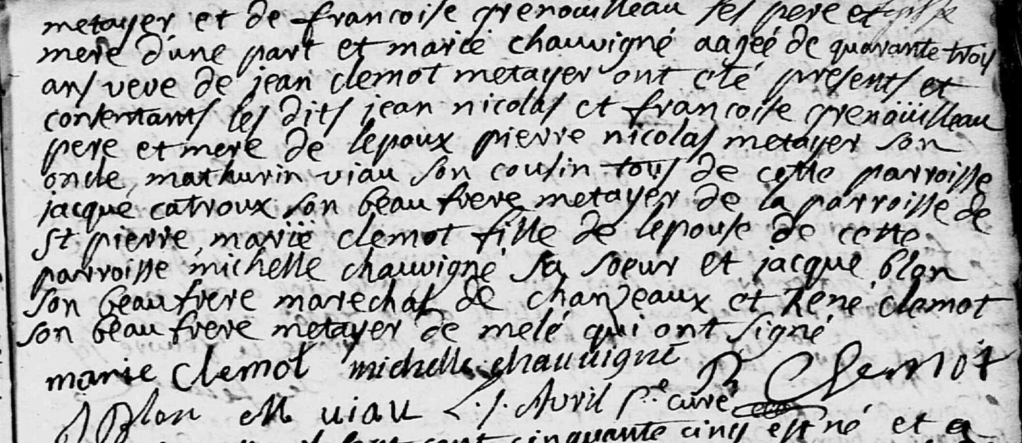 metayer et de francoise grenouilleau ses pere et
mere d'une part et marie chauvigné aagée de quarante trois
ans veve de jean clemot metayer ont eté presents et
consentants les dits jean nicolas et francoise grenoüilleau
pere et mere de lepoux pierre nicolas metayer son
oncle, mathurin viau son cousin tous de cette parroisse
jacque catroux son beau frere metayer de la parroisse de
st pierre, marie clemot fille de lepouse de cette
parroisse michelle chauvigné sa soeur et jacque blon
son beau frere marechal de chanzeaux et René clemot
son beau frere metayer de melé qui ont signé
marie clemot michelle chauvigné R Clemot
J Blon M viau L. J. Avril pe. curé
cinquante cinq est né et a